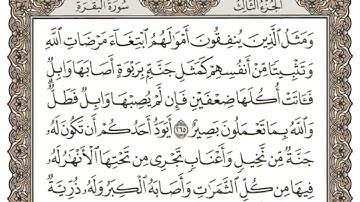 الجزء الثالث سورة البقرة
وَمَثَلُ ٱلَّذِينَ يُنفِقُونَ أَمْوَٰلَهُمُ ٱبْتِغَآءَ مَرْضَاتِ ٱللَّهِ
وَتَثْبِيتًا مِّنْ أَنفُسِهِمْ كَمَثَلِ جَنَّةٍۭ بِرَبْوَةٍ أَصَابَهَا وَابِلٌ
فَـَٔاتَتْ أُكُلَهَا ضِعْفَيْنِ فَإِن لَّمْ يُصِبْهَا وَابِلٌ فَطَلٌّ
وَٱللَّهُ بِمَا تَعْمَلُونَ بَصِيرٌ ٢٦٥ أَيَوَدُّ أَحَدُكُمْ أَن تَكُونَ لَهُۥ
جَنَّةٌ مِّن نَّخِيلٍ وَأَعْنَابٍ تَجْرِى مِن تَحْتِهَا ٱلْأَنْهَٰرُ لَهُۥ
فِيهَا مِن كُلِّ ٱلثَّمَرَٰتِ وَأَصَابَهُ ٱلْكِبَرُ وَلَهُۥ ذُرِّيَّةٌ